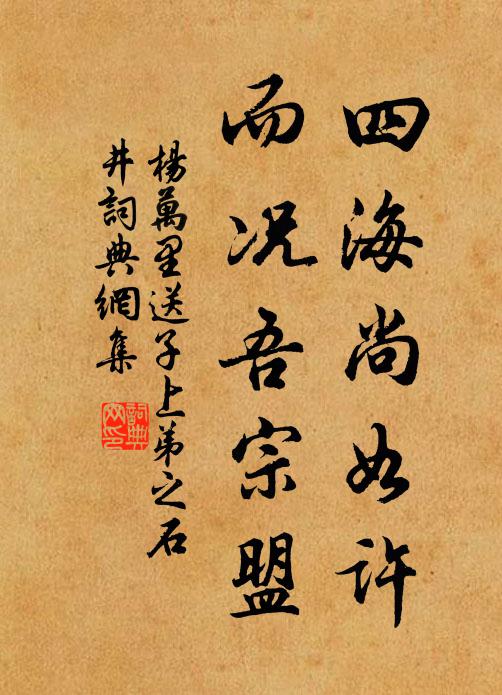 四海尚如许
而况吾宗盟
楊萬里送子上弟之石
井詞典網集
詞典
网印